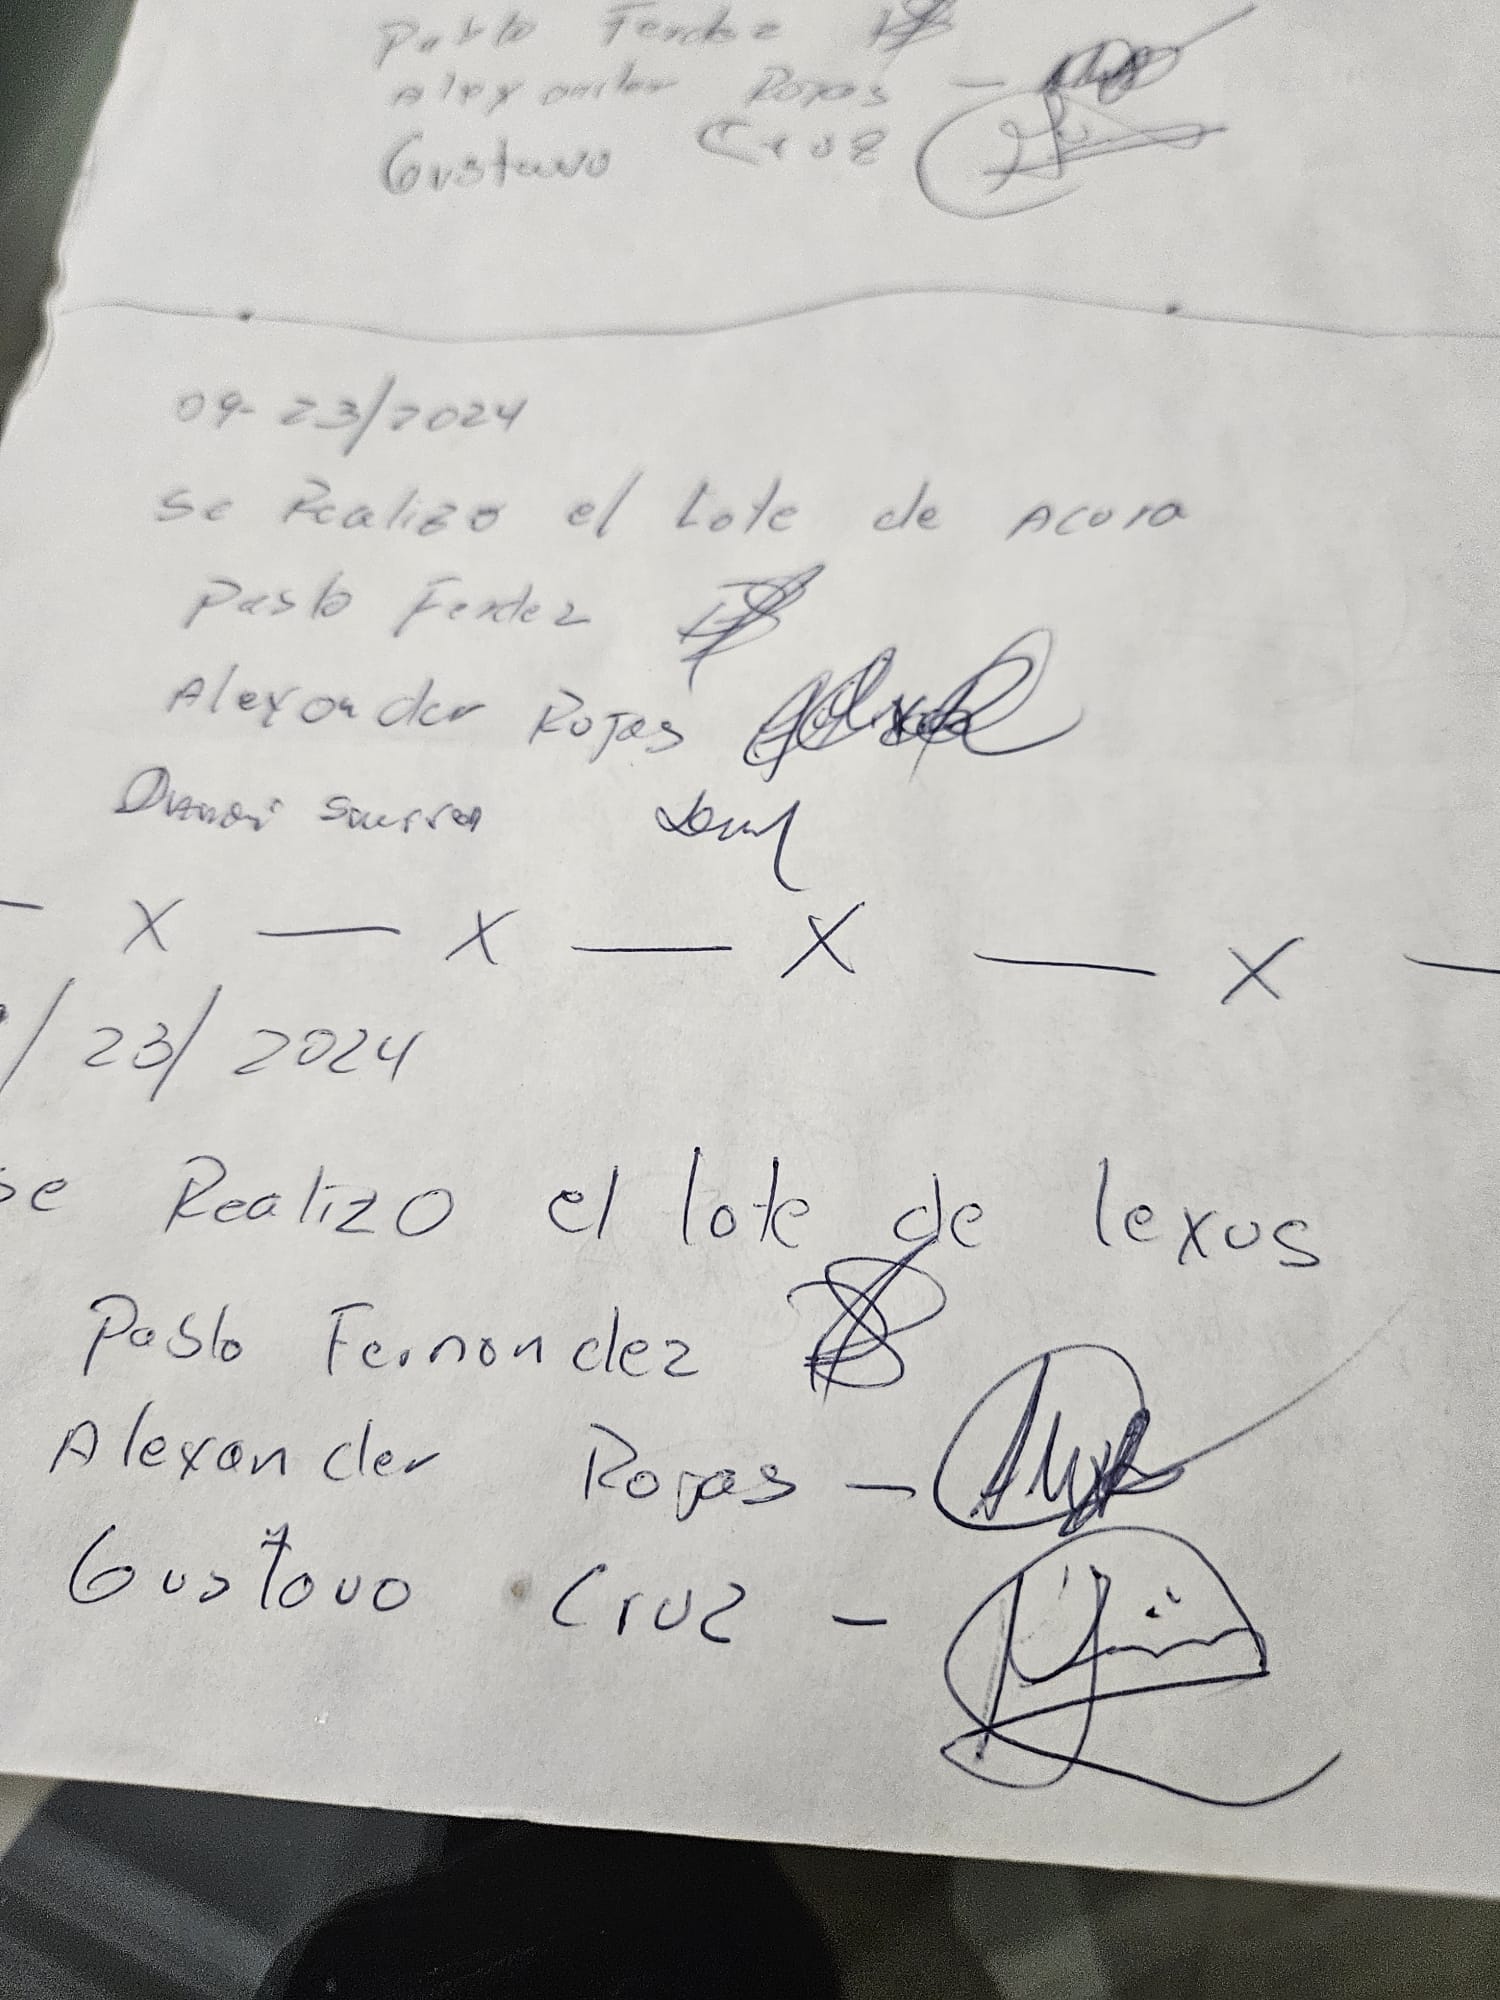 Pablo Fendez
Alexander Rojas -
Gustavo Cruz
09-23/2024
Se Realizo el Lote de Acura
Pablo Fendez
Alexander Rojas
X — X — X — X —
/23/2024
se Realizo el lote de lexus
Pablo Fernandez
Alexander Rojas -
Gustavo Cruz -